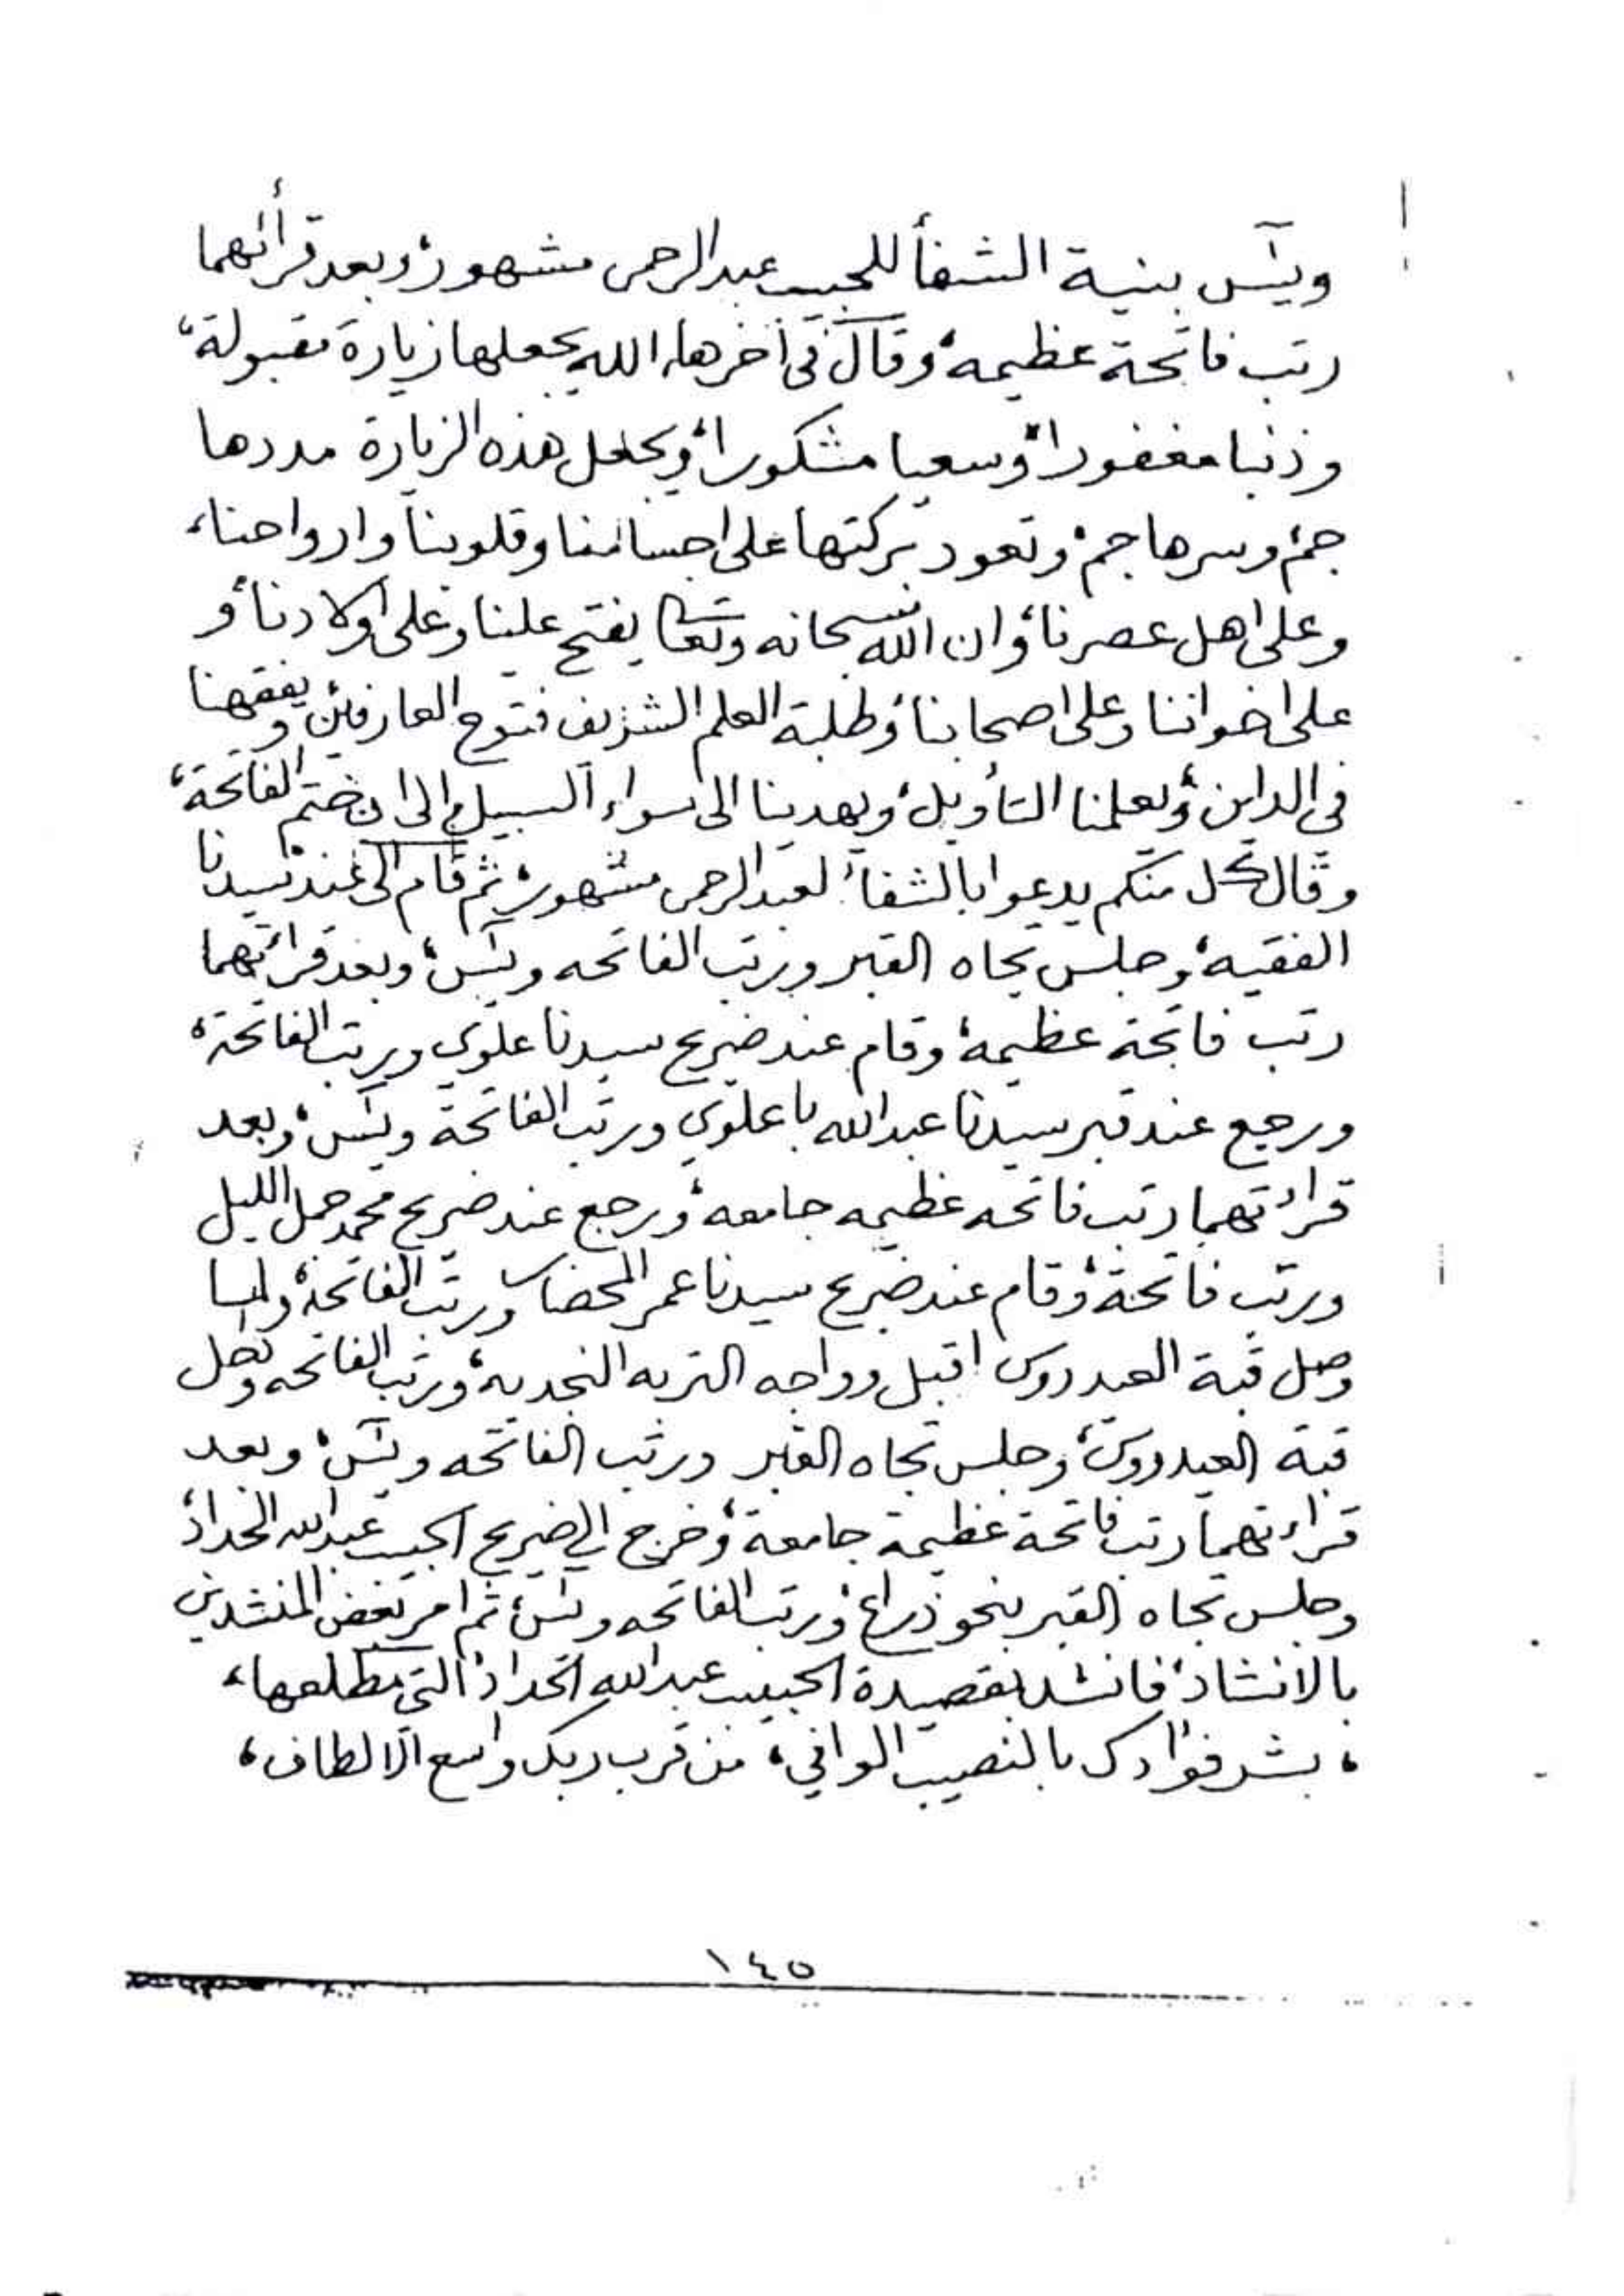 ويس بنية الشفأ للحبيب عبدالرحمن مشهور، وبعد قرأئهما
رتب فاتحة عظيمه، وقال في أخرها، الله يجعلها زيارة مقبولة،
وذنبا مغفورا، وسعيا مشكورا، ويجعل هذه الزيارة مددها
جم، وسرها جم، وتعود بركتها على اجسامنا وقلوبنا وارواحنا،
وعلى اهل عصرنا، وان الله سبحانه وتعالى يفتح علينا وعلى اولادنا، و
على اخواننا وعلى اصحابنا، وطلبة العلم الشريف فتوح العارفين، ويفقهنا
في الدين، ويعلمنا التأويل، ويهدينا الى سواء السبيل، الى ان ختم الفاتحة،
وقال كل منكم يدعوا بالشفأ، لعبدالرحمن مشهور، ثم قام الى عند سيدنا
الفقيه، وجلس تجاه القبر ورتب الفاتحه ويس، وبعد قرائتهما
رتب فاتحة عظيمة، وقام عند ضريح سيدنا علوي ورتب الفاتحة،
ورجع عند قبر سيدنا عبدالله باعلوي ورتب الفاتحة ويس، وبعد
قراءتهما رتب فاتحه عظيمه جامعه، ورجع عند ضريح محمد جمل الليل
ورتب فاتحة، وقام عند ضريح سيدنا عمر المحضار ورتب الفاتحة، ولما
وصل قبة العيدروس اقبل وواجه التربه النجديه، ورتب الفاتحه ودخل
قبة العيدروس، وجلس تجاه القبر ورتب الفاتحه ويس، وبعد
قراءتهما رتب فاتحة عظيمة جامعة، وخرج الى ضريح الحبيب عبدالله الحداد،
وجلس تجاه القبر بنحو ذراع، ورتب الفاتحه ويس، ثم امر بعض المنشدين
بالانشاد، فانشد بقصيدة الحبيب عبدالله الحداد، التي مطلعها،
، بشر فؤادك بالنصيب الوافي، من قرب ربك واسع الالطاف،
١٤٥